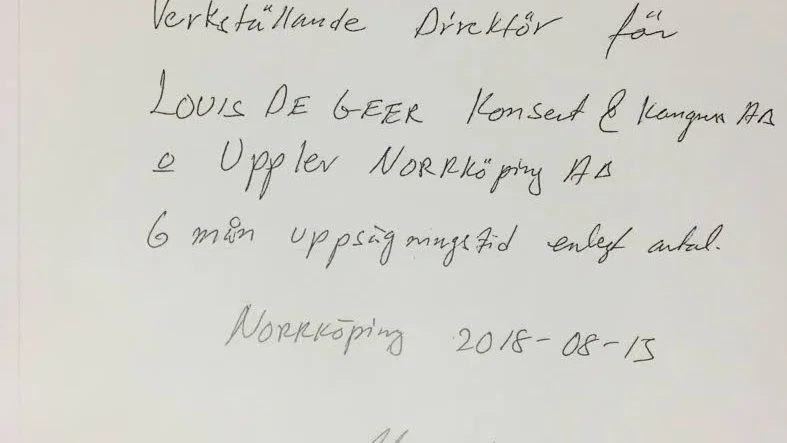 Verkställande Direktör för
LOUIS DE GEER Konsert & Kongress AB
o Upplev NORRKöping AB
6 mån uppsägningstid enligt avtal.
NORRKöping 2018-08-13